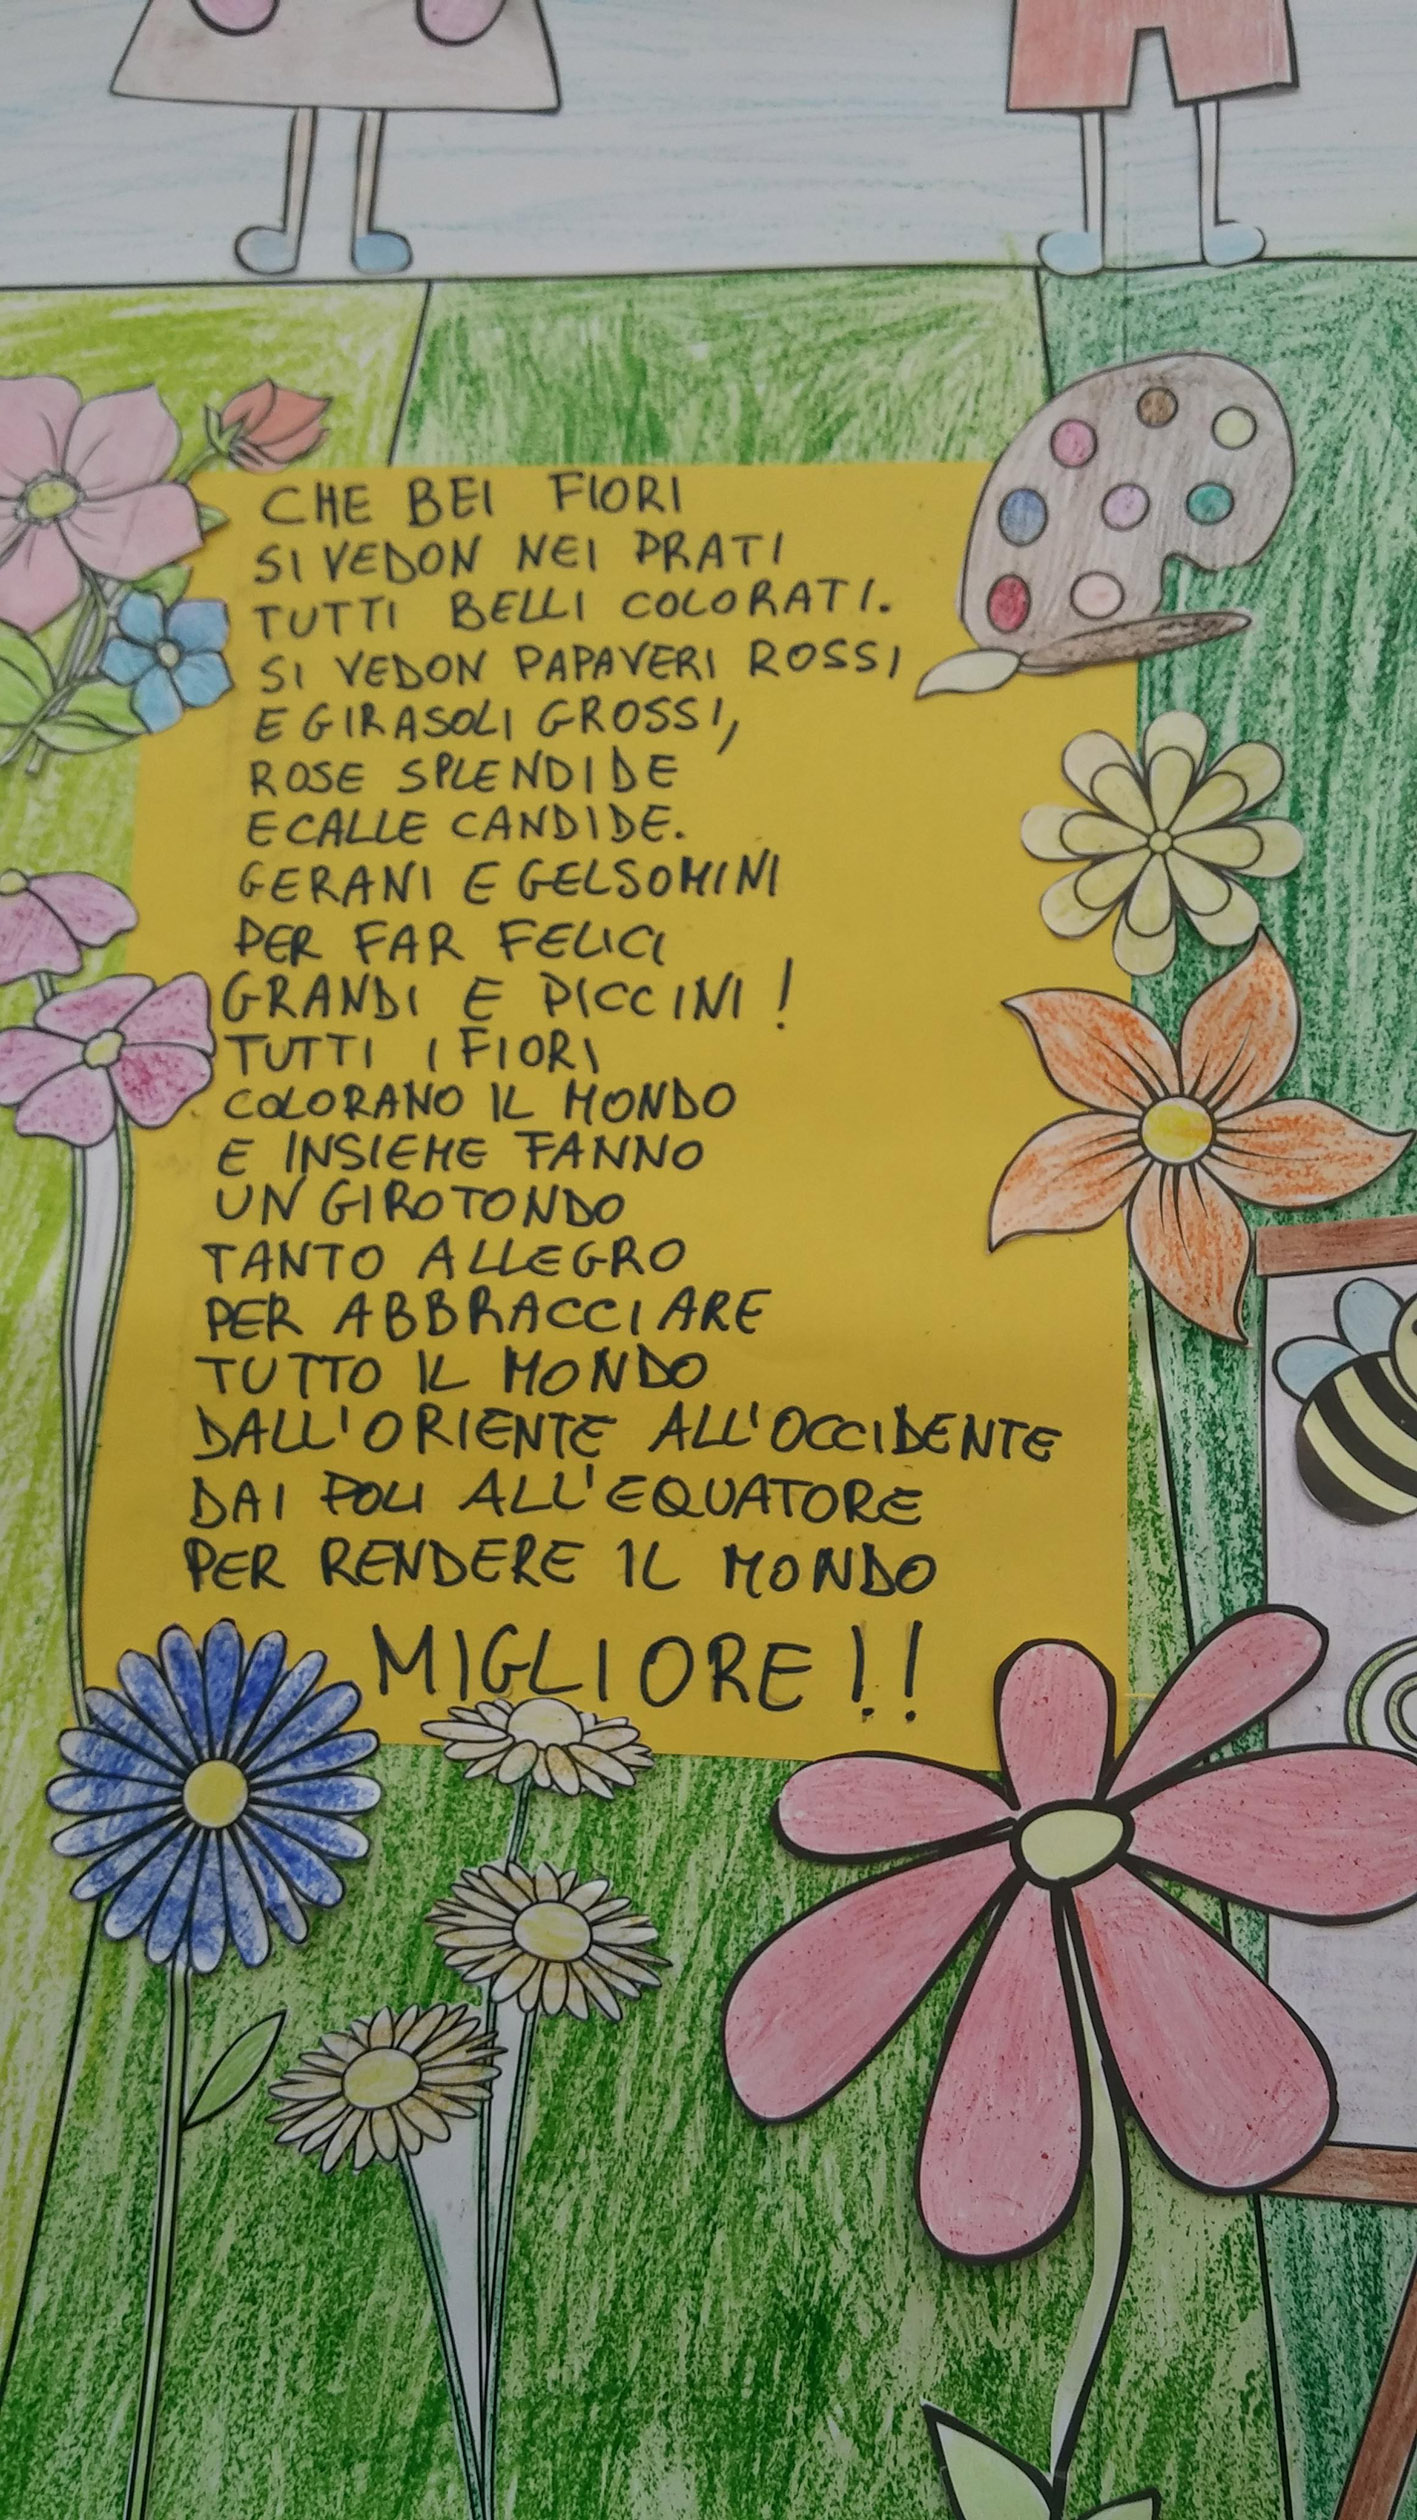 CHE BEI FIORI
SI VEDON NEI PRATI
TUTTI BELLI COLORATI.
SI VEDON PAPAVERI ROSSI
E GIRASOLI GROSSI,
ROSE SPLENDIDE
E CALLE CANDIDE.
GERANI E GELSOMINI
PER FAR FELICI
GRANDI E PICCINI!
TUTTI I FIORI
COLORANO IL MONDO
E INSIEME FANNO
UN GIROTONDO
TANTO ALLEGRO
PER ABBRACCIARE
TUTTO IL MONDO
DALL'ORIENTE ALL'OCCIDENTE
DAI POLI ALL'EQUATORE
PER RENDERE IL MONDO
MIGLIORE!!